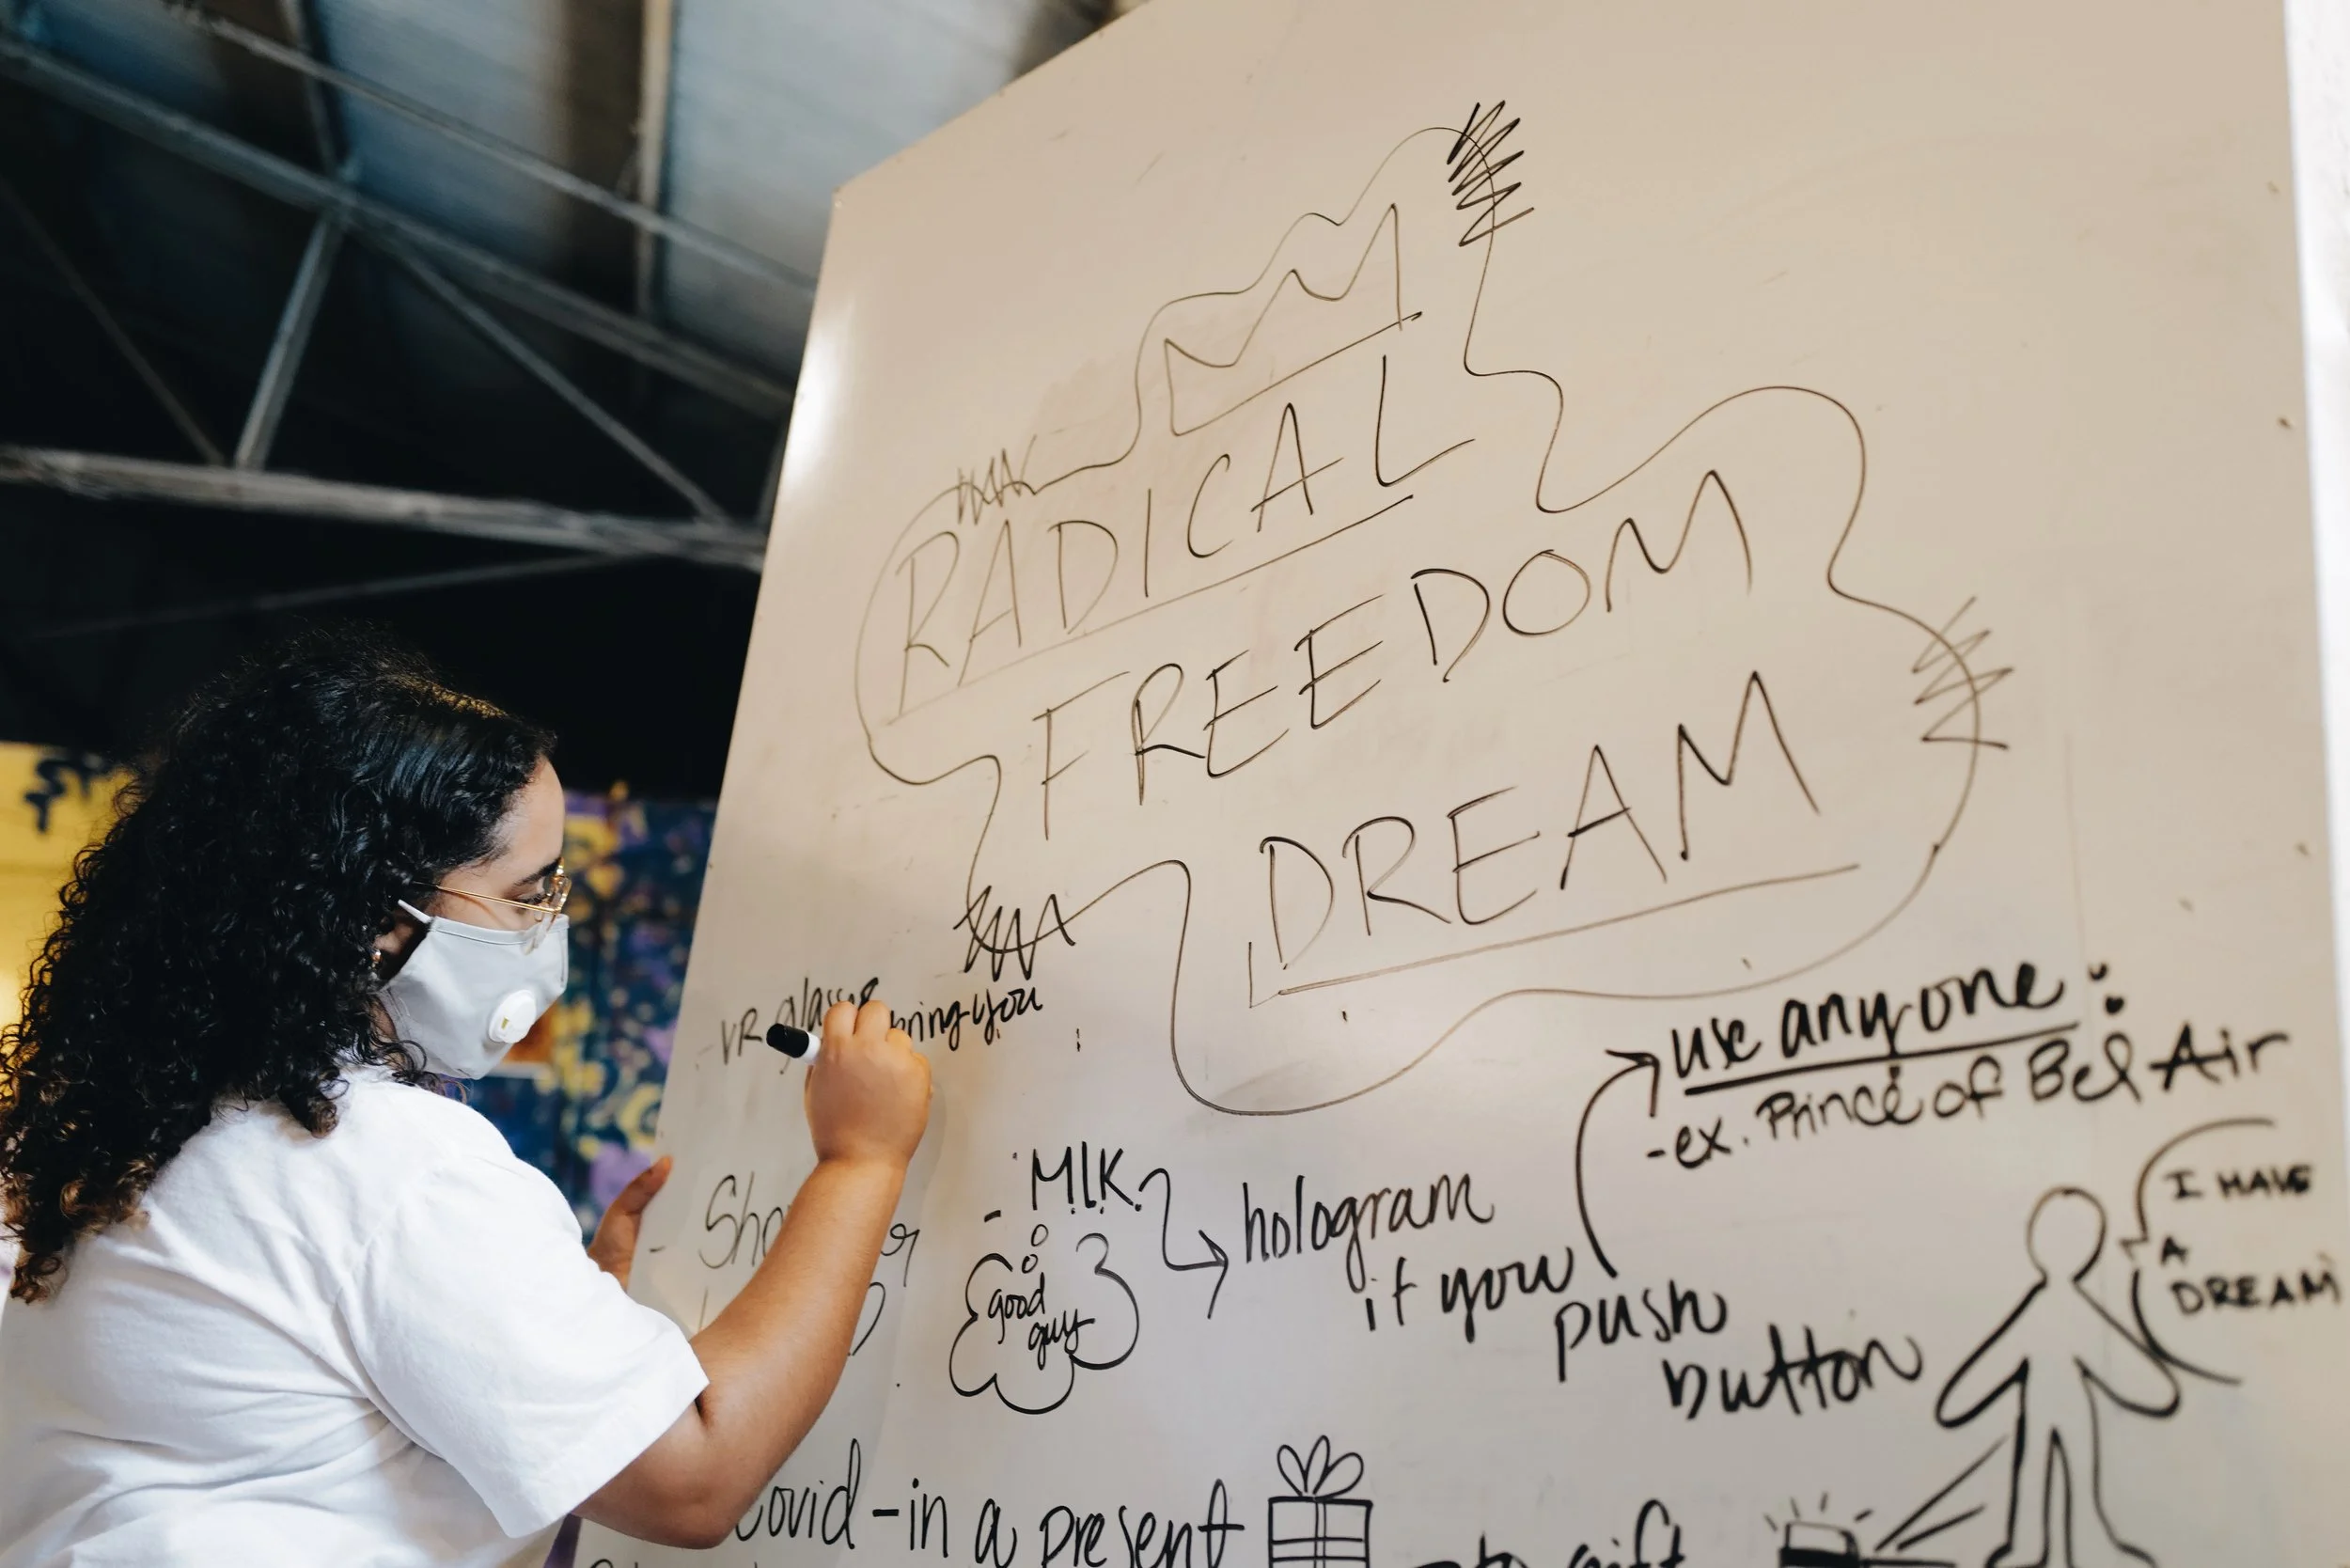 RADICAL
FREEDOM
DREAM
- VR glasses bring you
use anyone:
-ex. Prince of Bel Air
- M.L.K.
good
guy
hologram
if you
push
button
I HAVE
A
DREAM
Covid-in a present
to gift